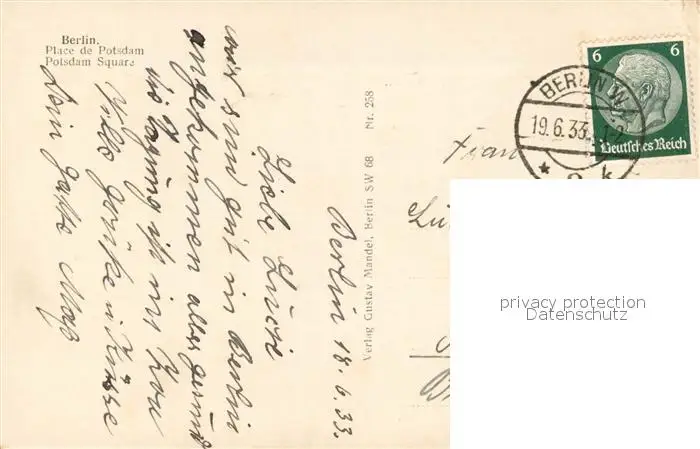 Berlin.
Place de Potsdam
Potsdam Square
Berlin 18.6.33.
Liebe Lucie
wir sind gut in Berlin
angekommen aber
ist ins
Viele u Küsse
Dein Gatte Max
Verlag Gustav Mandel, Berlin SW 68 Nr. 258
6 6
Deutsches Reich
BERLIN W
19.6.33. 1-2
* 9 k
Frau
privacy protection
Datenschutz